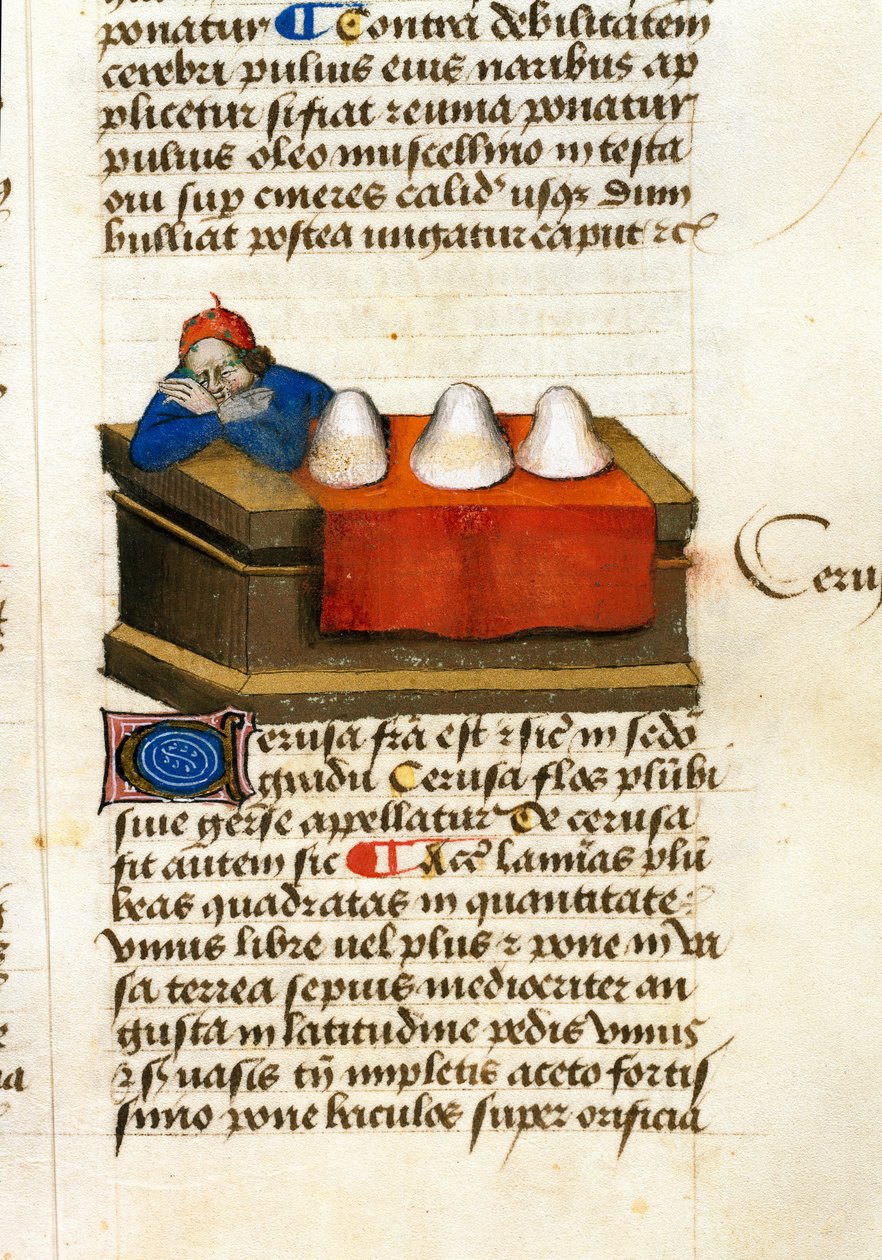 ponatur ¶ Contra debilitatem
cerebri puluis eius naribus ap
plicetur si fiat reuma ponatur
puluis oleo muscellino in testa
oui sup cineres calid usqꝫ dum
bulliat postea ungatur caput ⁊cͣ
Ceru
Cerusa frā est ⁊ sic̄ in sedo
gradu Cerusa flos plūbi
siue gerse appellatur De cerusa
fit autem sic ¶ Acc̄ laminas plū
beas quadratas in quantitate
vnius libre uel plus ⁊ pone in va
sa terrea sepius mediocriter an
gusta in latitudine pedis vnius
⁊ uasis tn̄ impletis aceto fortis
simo pone baculos super orificia